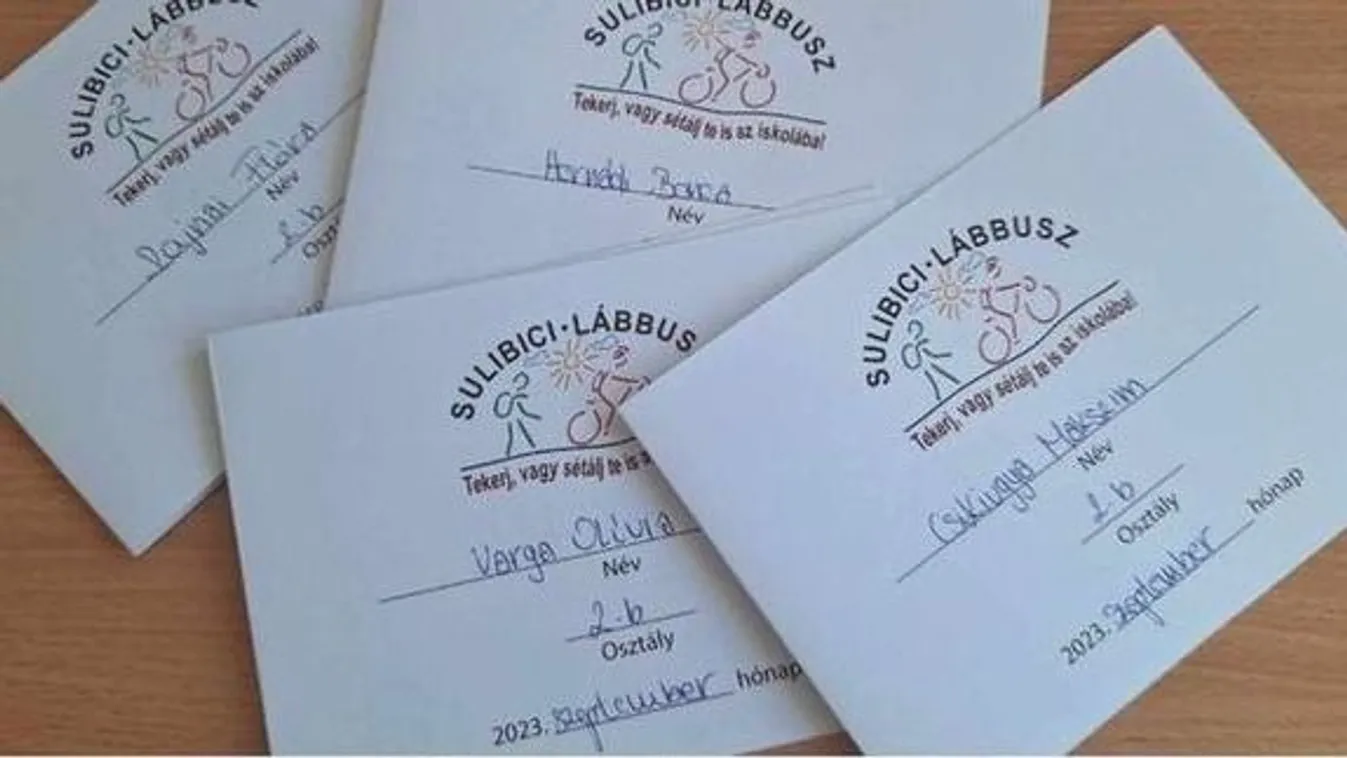 SULIBICI·LÁBBUSZ
Tekerj, vagy sétálj te is az iskolába!
Flóra
Név
2.b
SULIBICI·LÁBBUSZ
Tekerj, vagy sétálj te is az iskolába!
Banca
Név
SULIBICI·LÁBBUS
Tekerj, vagy sétálj te is
Varga Olívia
Név
2.b
Osztály
2023. szeptember hónap
SULIBICI·LÁBBUSZ
Tekerj, vagy sétálj te is az iskolába!
Csikivgya Makszim
Név
2.b
Osztály
2023. szeptember hónap